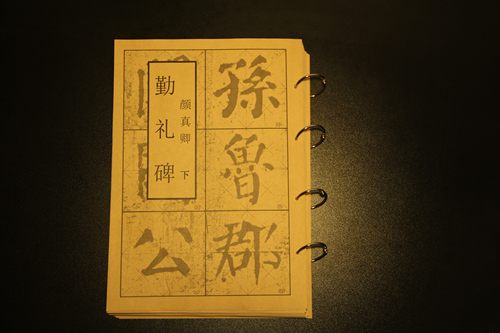 勤礼碑
颜真卿 下
孫魯郡
公